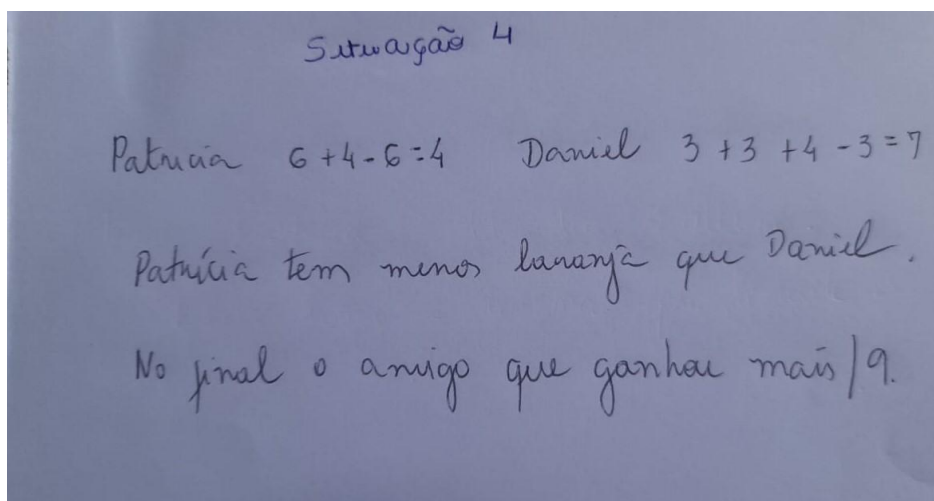 Situação 4
Patricia 6+4-6=4 Daniel 3+3+4-3=7
Patrícia tem menos laranja que Daniel.
No final o amigo que ganhou mais/9.